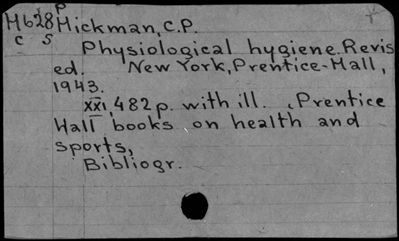 P
H628 Hickman, C.P.
C S
Physiological hygiene. Revis
ed. New York, Prentice-Hall,
1943.
XXI, 482 p. with ill. , Prentice
Hall books on health and
sports,
Bibliogr.